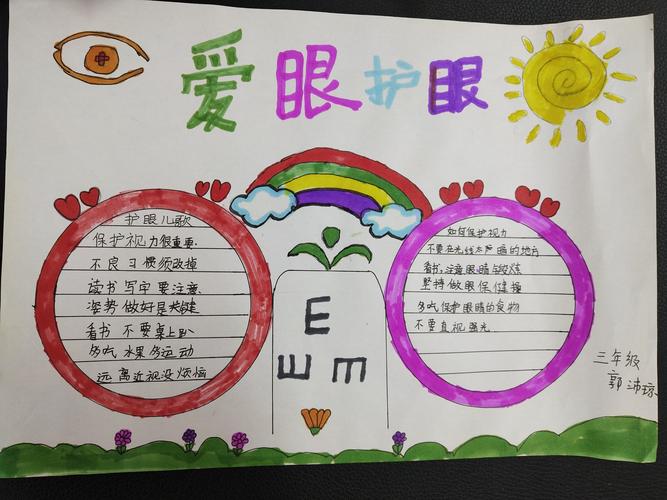 爱眼护眼
护眼儿歌
保护视力很重要.
不良习惯须改掉
读书写字要注意
姿势做好是关键
看书不要桌上趴
多吃水果多运动
远离近视没烦恼
E
E E
如何保护视力
不要在光线太暗的地方
看书,注意眼睛
坚持做眼保健操
多吃保护眼睛的食物
不要直视强光
三年级
郭沛琼